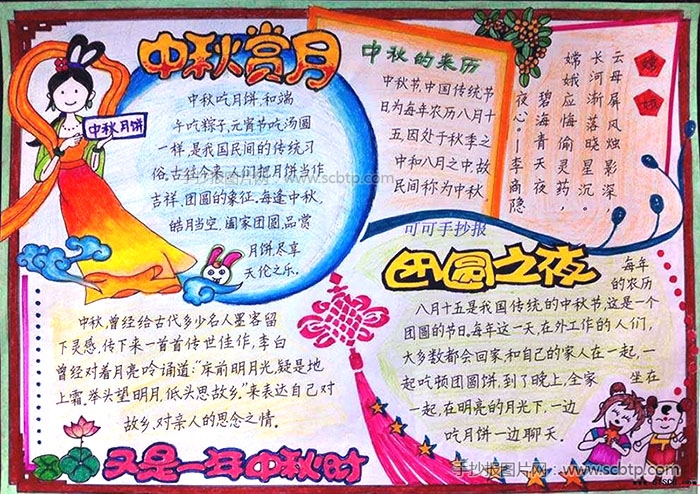 中秋赏月
中秋月饼
中秋吃月饼,和端
午吃粽子,元宵节吃汤圆
一样,是我国民间的传统习
俗,古往今来,人们把月饼当作
吉祥、团圆的象征,每逢中秋,
皓月当空,阖家团圆,品尝
月饼,尽享
天伦之乐。
中秋的来历
中秋节,中国传统节
日为每年农历八月十
五,因处于秋季之
中和八月之中,故
民间称为中秋
嫦
娥
云母屏风烛影深,
长河渐落晓星沉。
嫦娥应悔偷灵药,
碧海青天夜
夜心。—李商隐
可可手抄报
团圆之夜
每年
的农历
八月十五是我国传统的中秋节,这是一个
团圆的节日,每年这一天,在外工作的人们,
大多数都会回家,和自己的家人在一起,一
起吃顿团圆饼,到了晚上,全家坐在
一起,在明亮的月光下,一边
吃月饼一边聊天.
中秋,曾经给古代多少名人墨客留
下灵感,传下来一首首传世佳作,李白
曾经对着月亮吟诵道:"床前明月光,疑是地
上霜.举头望明月,低头思故乡."来表达自己对
故乡,对亲人的思念之情.
又是一年中秋时
手抄报图片网:www.scbtp.com
手抄报图片网:www.scbtp.com